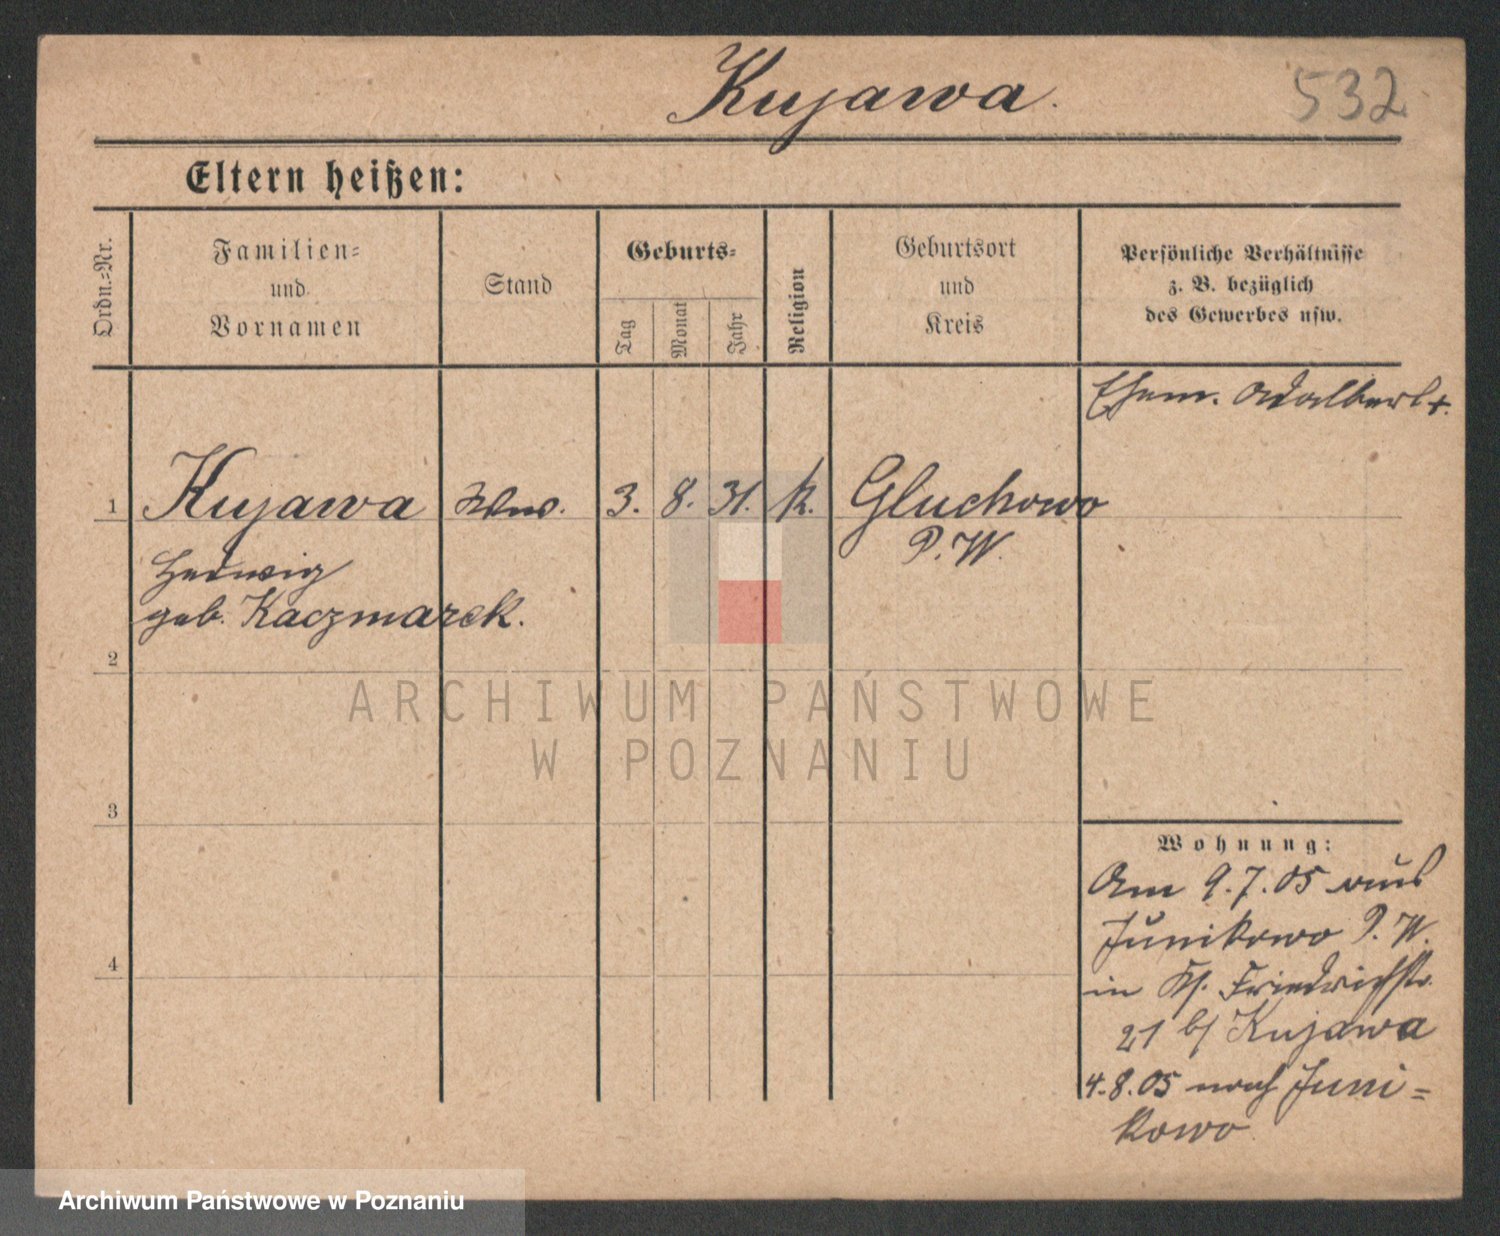 Kujawa.
532
Eltern heißen:
Ordn.-Nr.
Familien-
und
Vornamen
Stand
Geburts-
Tag
Monat
Jahr
Religion
Geburtsort
und
Kreis
Persönliche Verhältnisse
z. B. bezüglich
des Gewerbes usw.
Ehem. Adalbert +.
1 Kujawa Wwe. 3. 8. 31. k. Gluchowo
P. W.
Hedwig
geb. Kaczmarek.
2
3
4
Wohnung:
Am 9.7.05 aus
Junikowo P. W.
in Friedrichstr.
21 b/ Kujawa
4.8.05 nach Juni-
kowo
ARCHIWUM PAŃSTWOWE
W POZNANIU
Archiwum Państwowe w Poznaniu